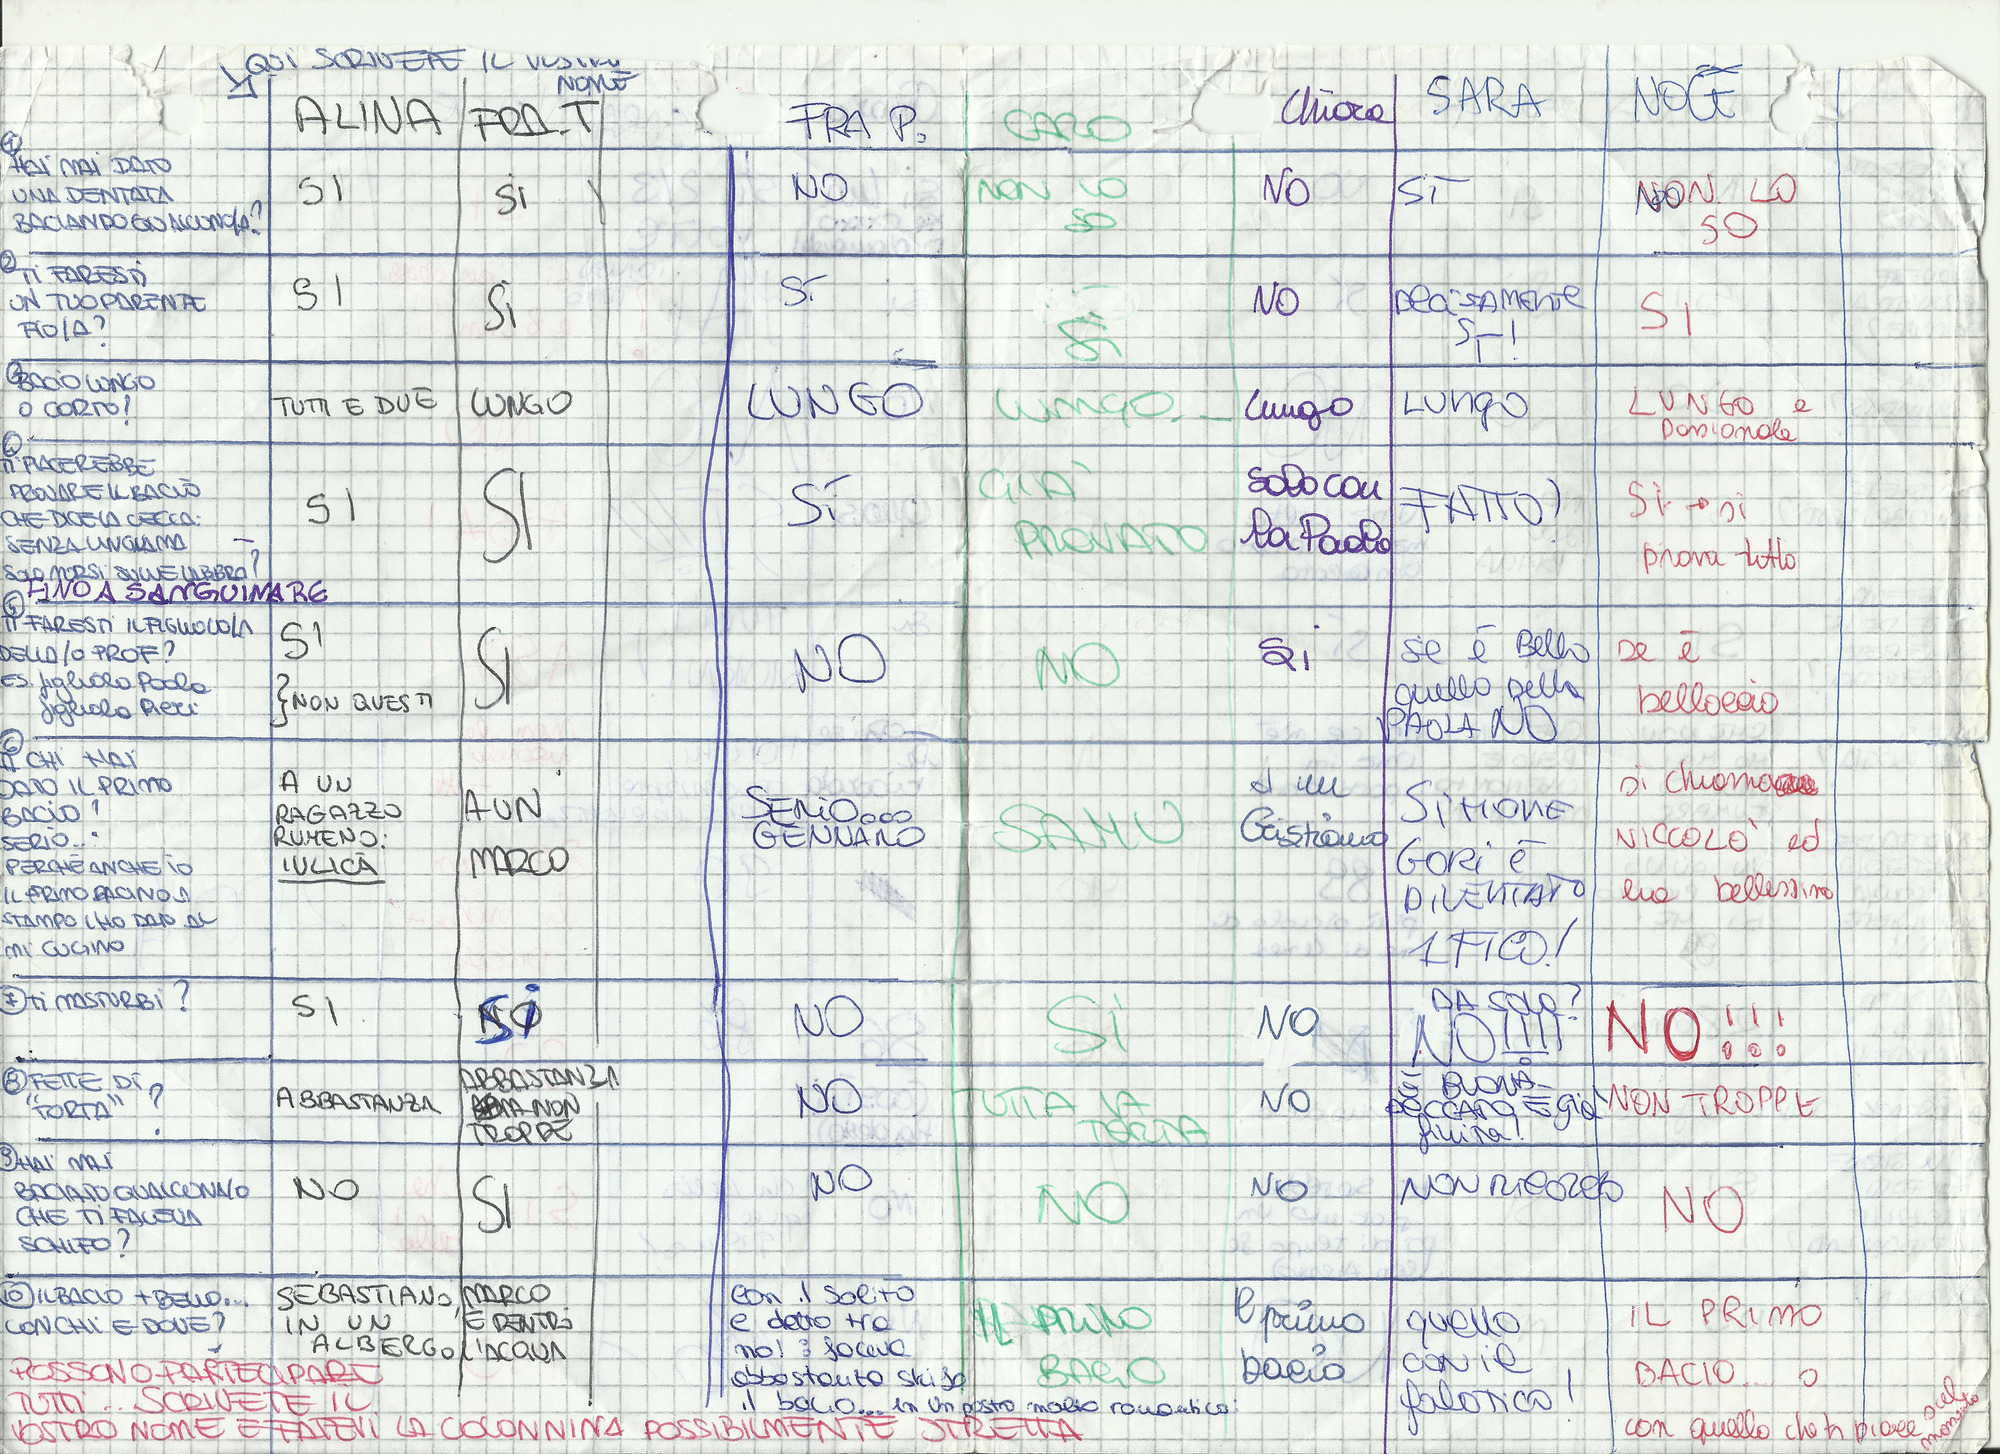 QUI SCRIVETE IL VOSTRO
NOME
ALINA
FRA. T
FRA P.
CARO
Chiara
SARA
NOCE
1
HAI MAI DATO
UNA DENTATA
BACIANDO QUALCUNO/A?
SI
SI
NO
NON LO
SO
NO
SÌ
NON LO
SO
2
TI FARESTI
UN TUO PARENTE
FIO/A?
SI
Si
SÍ
Sì
NO
DeCiSAMENTE
SI!
SI
3
BACIO LUNGO
O CORTO?
TUTTI E DUE
LUNGO
LUNGO
LUNGO
lungo
LUNgO
LUNGO e
passionale
4
TI PIACEREBBE
PROVARE IL BACIO
CHE DICE LA CECCA:
SENZA LINGUA MA
SOLO MORSI SULLE LABBRA?
FINO A SANGUINARE
SI
SI
SÍ
GIÀ
PROVATO
SOLO CON
la Paola
FATTO!
SI → si
prova tutto
5
TI FARESTI IL FIGLIOLO/A
DELLA/O PROF?
ES. figliolo Paola
figliolo Pieri
SI
} NON QUESTI
SI
NO
NO
Si
Se é Bello
quello della
PAOLA NO
se é
belloccio
6
A CHI HAI
DATO IL PRIMO
BACIO?
SERIO...
PERCHÈ ANCHE IO
IL PRIMO BACINO A
STAMPO L'HO DATO AL
MI CUGINO
A UN
RAGAZZO
RUMENO:
IULICĂ
A UN
MARCO
SERIO...
GENNARO
SAMU
A un
Cristiano
SiMONE
GORi É
DIVENTATO
1 FICO!
si chiama
NICCOLO' ed
era bellissimo
7 TI MASTURBI?
SI
SI
NO
Si
NO
DA SOLA?
NO!!!!
NO!!!
8 FETTE DI
"TORTA"?
ABBASTANZA
ABBASTANZA
MA NON
TROPPE
NO
TUTTA LA
TORTA
NO
É BUONA
PECCATO É già
finita!
NON TROPPE
9 HAI MAI
BACIATO QUALCUNA/O
CHE TI FACEVA
SCHIFO?
NO
SI
NO
NO
NO
NON RICORDO
NO
10 IL BACIO + BELLO...
CON CHI E DOVE?
SEBASTIANO,
IN UN
ALBERGO
MARCO
E DENTRO
L'ACQUA
con il solito
e detto tra
noi faceva
abbastanza schifo
il bacio... in un posto molto romantico!
IL PRIMO
BACIO
Il primo
bacio
quello
con il
falotico!
IL PRIMO
BACIO... o
con quello che ti piace
POSSONO PARTECIPARE
TUTTI... SCRIVETE IL
VOSTRO NOME E FATEVI LA COLONNINA POSSIBILMENTE STRETTA